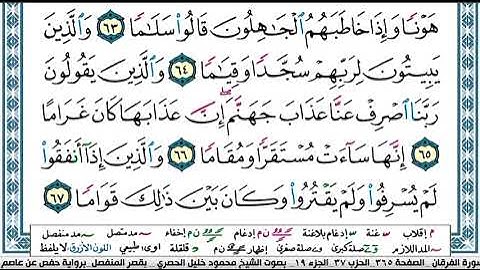 هَوْنًا وَإِذَا خَاطَبَهُمُ ٱلْجَٰهِلُونَ قَالُوا۟ سَلَٰمًا ٦٣ وَٱلَّذِينَ
يَبِيتُونَ لِرَبِّهِمْ سُجَّدًا وَقِيَٰمًا ٦٤ وَٱلَّذِينَ يَقُولُونَ
رَبَّنَا ٱصْرِفْ عَنَّا عَذَابَ جَهَنَّمَ ۖ إِنَّ عَذَابَهَا كَانَ غَرَامًا
٦٥ إِنَّهَا سَآءَتْ مُسْتَقَرًّا وَمُقَامًا ٦٦ وَٱلَّذِينَ إِذَآ أَنفَقُوا۟
لَمْ يُسْرِفُوا۟ وَلَمْ يَقْتُرُوا۟ وَكَانَ بَيْنَ ذَٰلِكَ قَوَامًا ٦٧
م إقلاب غنة إدغام بلاغنة ن م إدغام ن م إخفاء مد متصل مد منفصل
المد اللازم صلة كبرى صلة صغرى إظهار ن م قلقلة اوى: طبيعي اللون الأزرق: لا يلفظ
سورة الفرقان الصفحة ٣٦٥ الحزب ٣٧ الجزء ١٩ بصوت الشيخ محمود خليل الحصري بقصر المنفصل برواية حفص عن عاصم